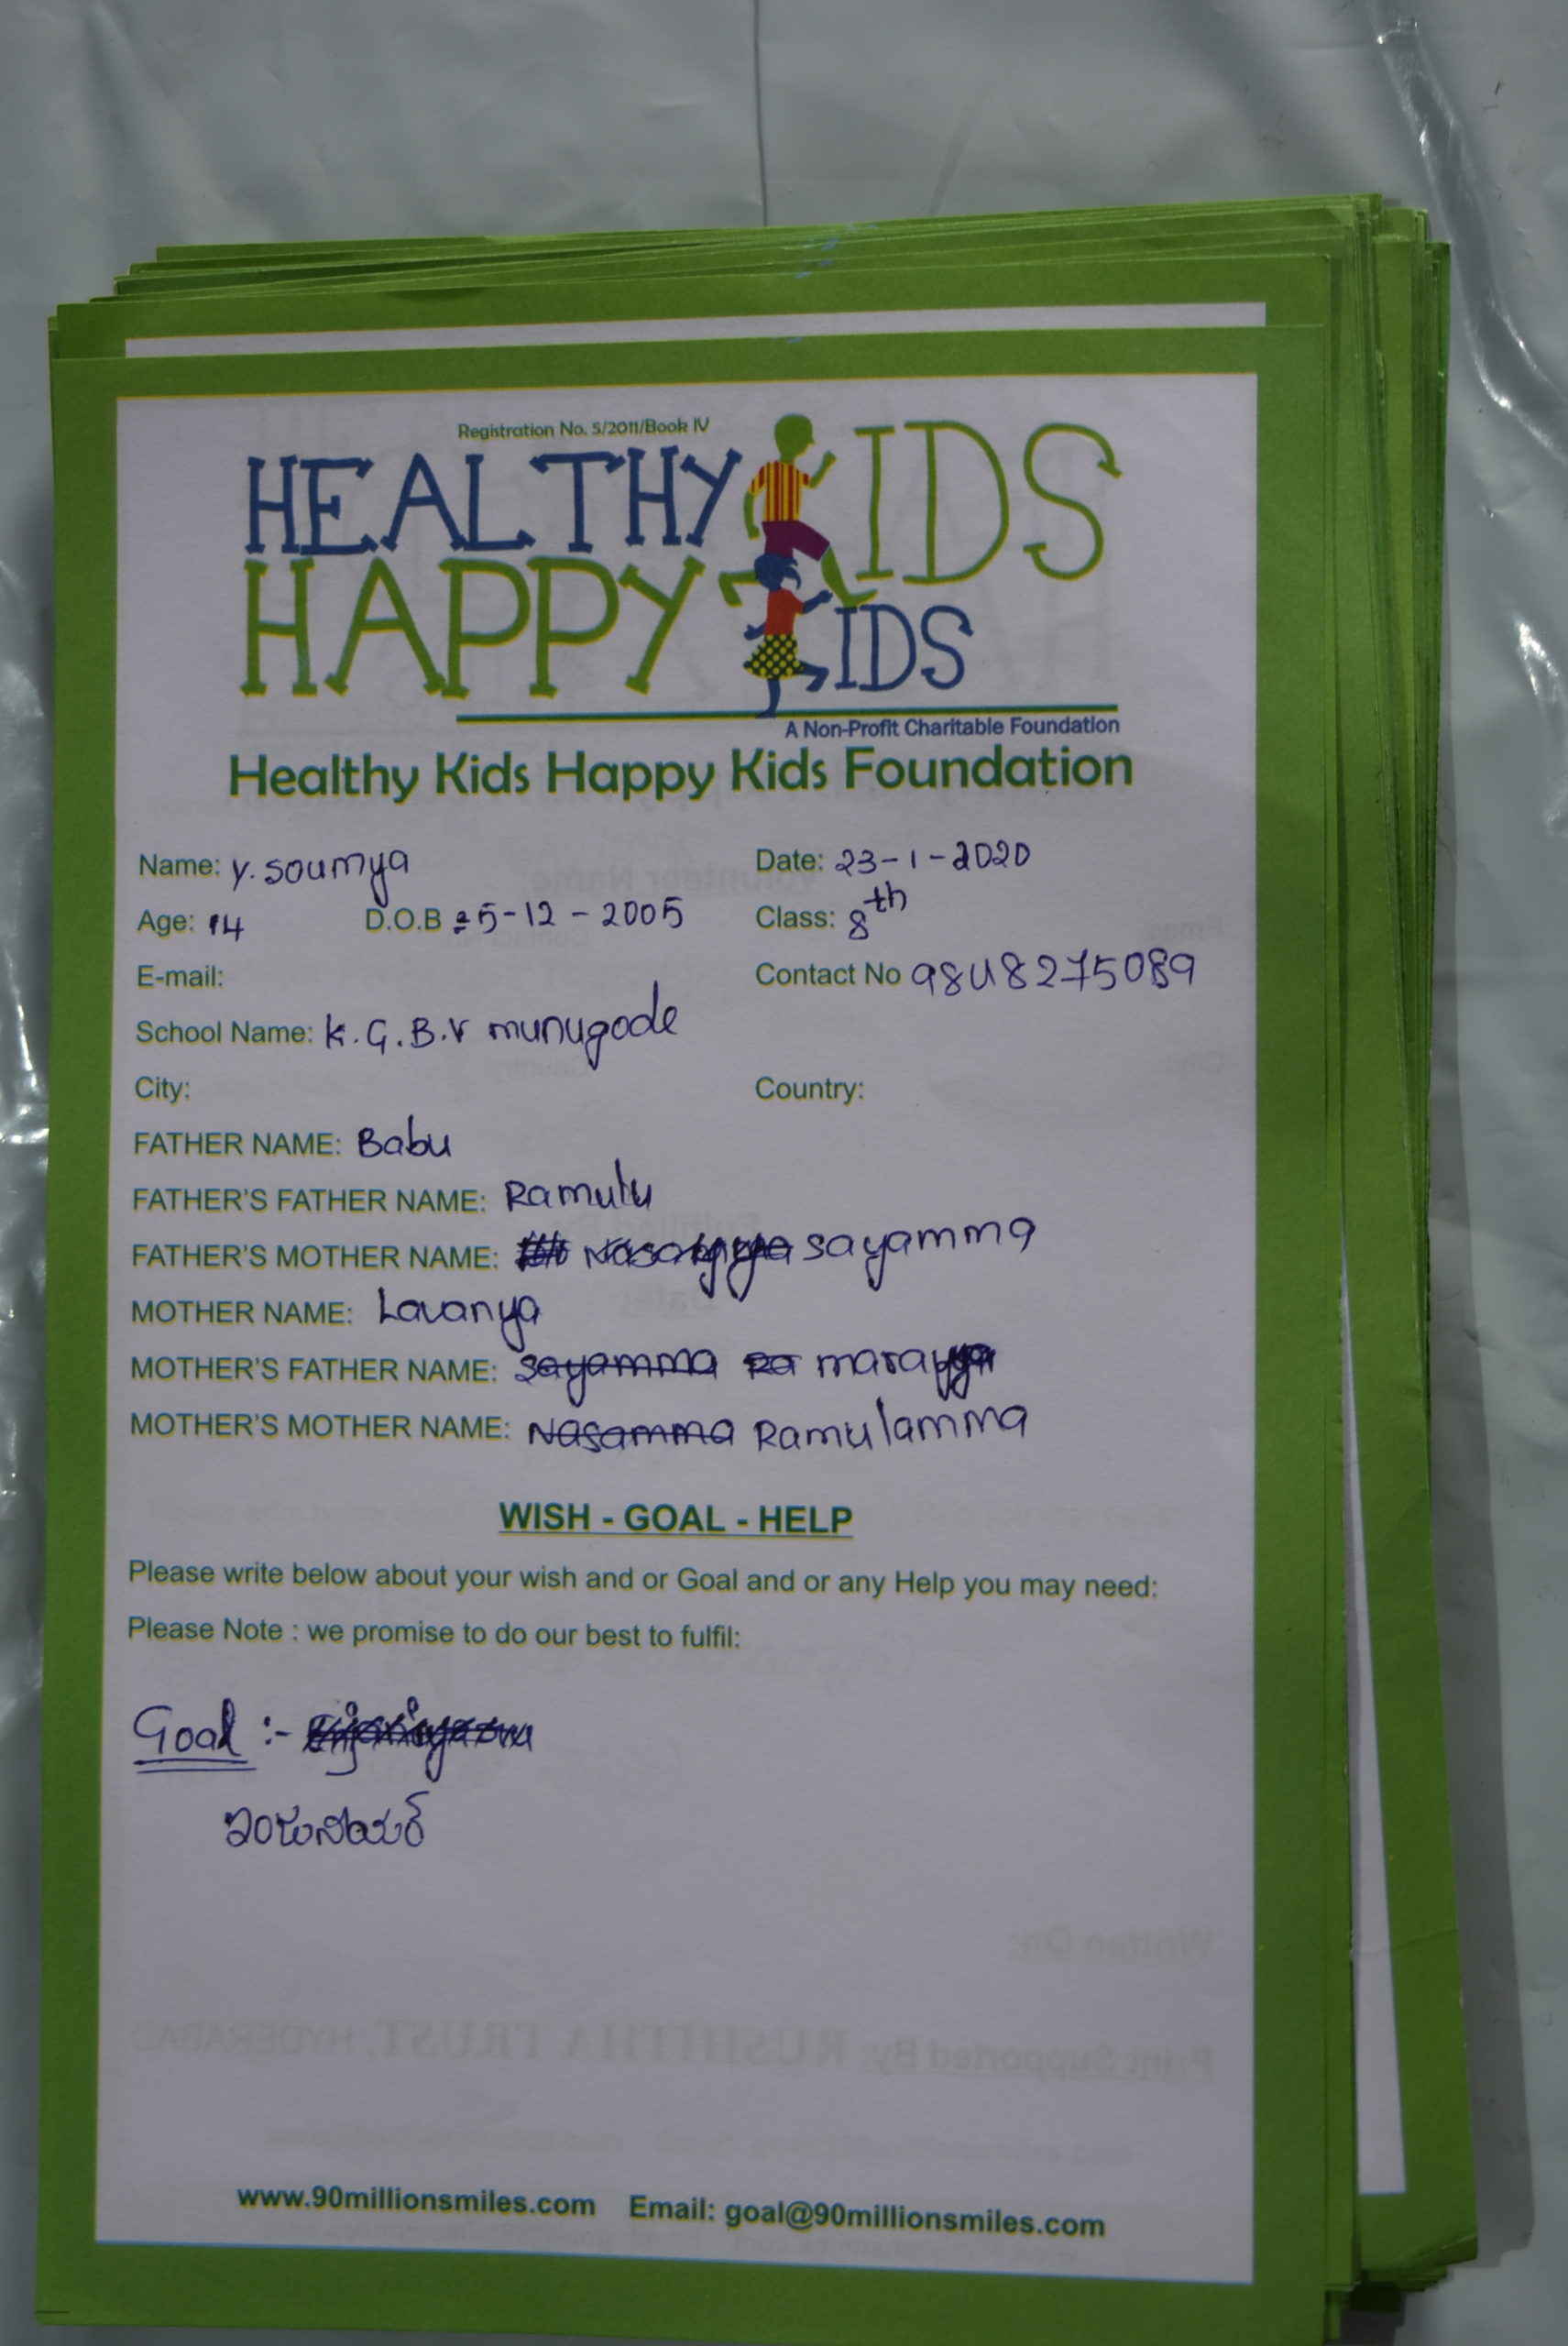 Registration No. 5/2011/Book IV
HEALTHY KIDS
HAPPY KIDS
A Non-Profit Charitable Foundation
Healthy Kids Happy Kids Foundation
Name: Y. Soumya Date: 23-1-2020
Age: 14 D.O.B :5-12-2005 Class: 8th
E-mail: Contact No 9848275089
School Name: K.G.B.V munugode
City: Country:
FATHER NAME: Babu
FATHER'S FATHER NAME: Ramulu
FATHER'S MOTHER NAME: sayamma
MOTHER NAME: Lavanya
MOTHER'S FATHER NAME: sayamma Ra marayya
MOTHER'S MOTHER NAME: Nasamma Ramulamma
WISH - GOAL - HELP
Please write below about your wish and or Goal and or any Help you may need:
Please Note : we promise to do our best to fulfil:
Goal :-
ఇంజనీయర్
www.90millionsmiles.com Email: goal@90millionsmiles.com